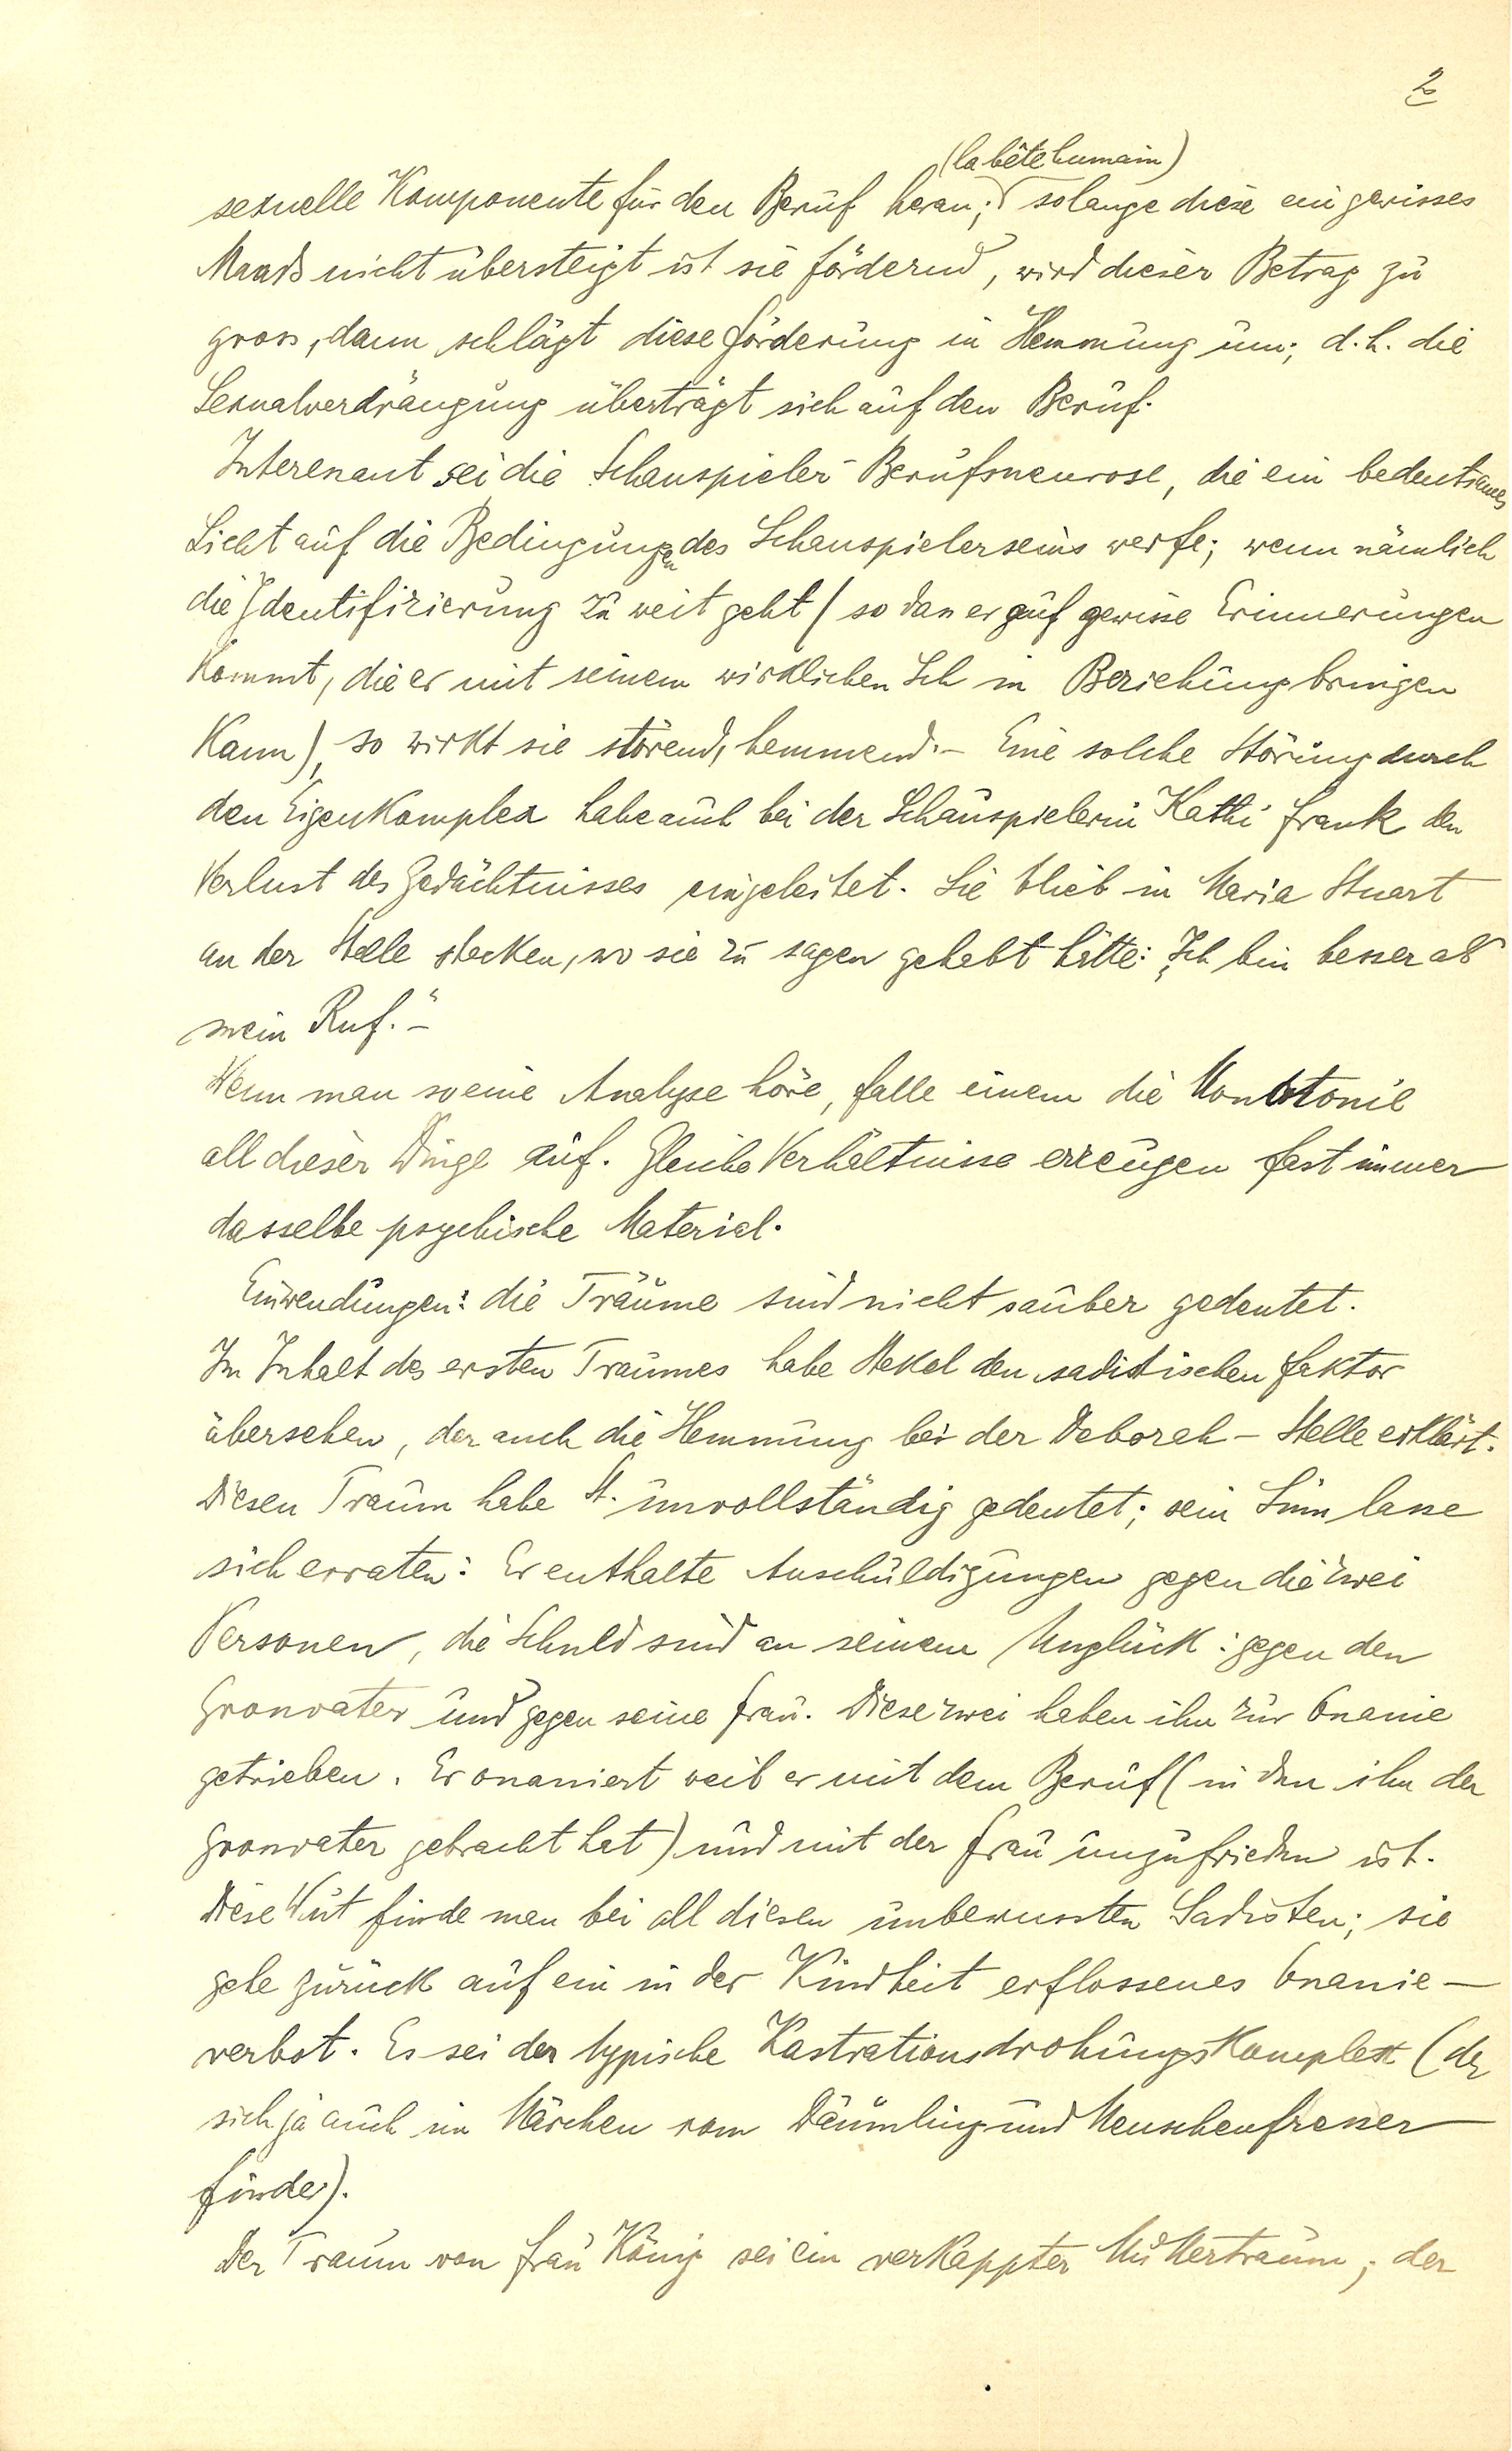 2
(la bête humain)
sexuelle Komponente für den Beruf heran; solange diese ein gewisses
Maass nicht übersteigt ist sie fördernd, wird dieser Betrag zu
gross, dann schlägt diese Förderung in Hemmung um; d.h. die
Sexualverdrängung überträgt sich auf den Beruf.
Interessant sei die Schauspieler-Berufsneurose, die ein bedeutsames
Licht auf die Bedingungen des Schauspielerseins werfe; wenn nämlich
die Identifizierung zu weit geht (so dass er auf gewisse Erinnerungen
kommt, die er mit seinem wirklichen Ich in Beziehung bringen
kann), so wirkt sie störend, hemmend. – Eine solche Störung durch
den Eigenkomplex habe auch bei der Schauspielerin Kathi Frank den
Verlust des Gedächtnisses eingeleitet. Sie blieb in Maria Stuart
an der Stelle stecken, wo sie zu sagen gehabt hätte: „Ich bin besser als
mein Ruf.“ –
Wenn man so eine Analyse höre, falle einem die Monotonie
all dieser Dinge auf. Gleiche Verhältnisse erzeugen fast immer
dasselbe psychische Material.
Einwendungen: die Träume sind nicht sauber gedeutet.
Im Inhalt des ersten Traumes habe Stekel den sadistischen Faktor
übersehen, der auch die Hemmung bei der Deborah – Stelle erklärt.
Diesen Traum habe St. unvollständig gedeutet; sein Sinn lasse
sich erraten: Er enthalte Anschuldigungen gegen die zwei
Personen, die Schuld sind an seinem Unglück: gegen den
Grossvater und gegen seine Frau. Diese zwei haben ihn zur Onanie
getrieben. Er onaniert weil er mit dem Beruf (in den ihn der
Grossvater gebracht hat) und mit der Frau unzufrieden ist.
Diese Wut finde man bei all diesen unbewussten Sadisten; sie
gehe zurück auf ein in der Kindheit erflossenes Onanie–
verbot. Es sei der typische Kastrationsdrohungskomplex (der
sich ja auch im Märchen vom Däumling und Menschenfresser
findet).
Der Traum von Frau König sei ein verkappter Muttertraum; der